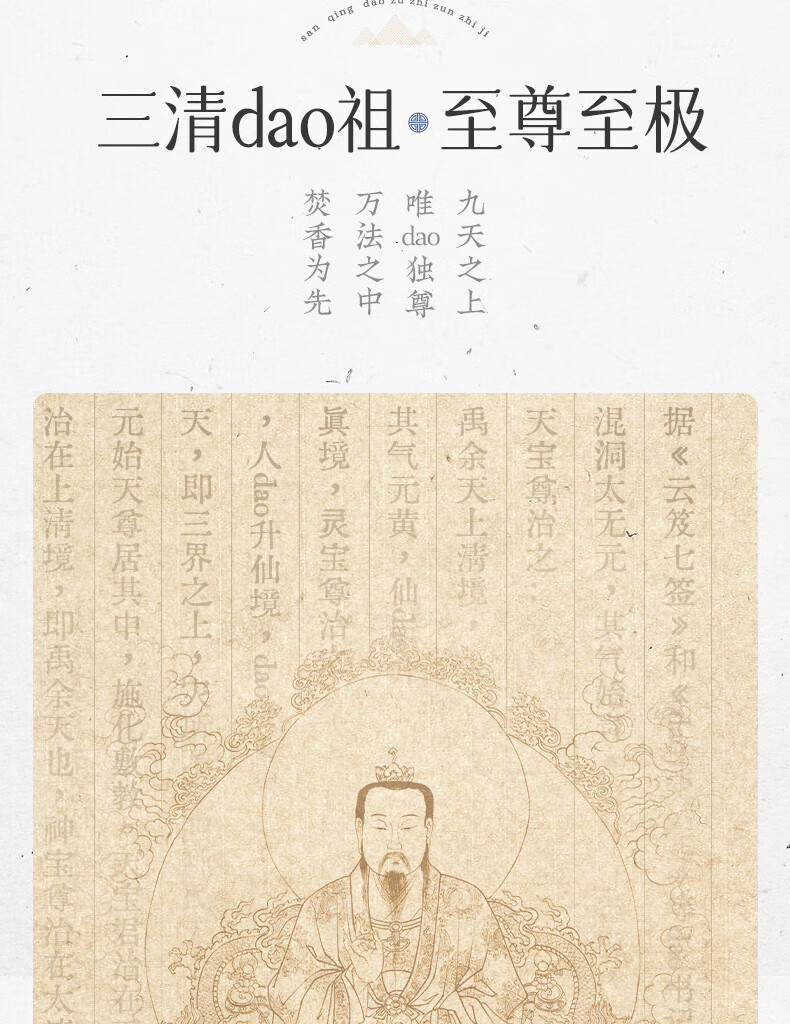 san qing dao zu zhi zun zhi ji
三清dao祖 至尊至极
九天之上
唯dao独尊
万法之中
焚香为先
据《云笈七签》和《
混洞太无元，其气始
天宝尊治之；
禹余天上清境，
其气元黄，仙dao
真境，灵宝尊治
，人dao升仙境，dao
天，即三界之上，
元始天尊居其中，施化敷教。天宝君治在
治在上清境，即禹余天也，神宝尊治在太